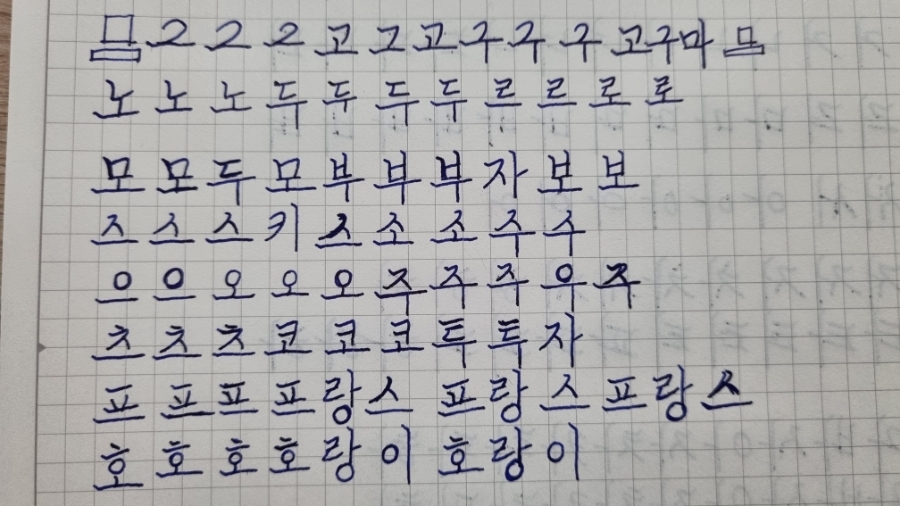 므 그 그 그 고 그 고 구 구 구 고구마 므
노 노 노 두 두 두 두 르 르 로 로
모 모 두 모 부 부 부 자 보 보
즈 스 스 키 스 소 소 주 수
으 으 오 오 오 주 주 주 우 주
츠 츠 츠 코 코 코 투 투 자
프 프 프 프랑스 프랑스 프랑스
호 호 호 호랑이 호랑이